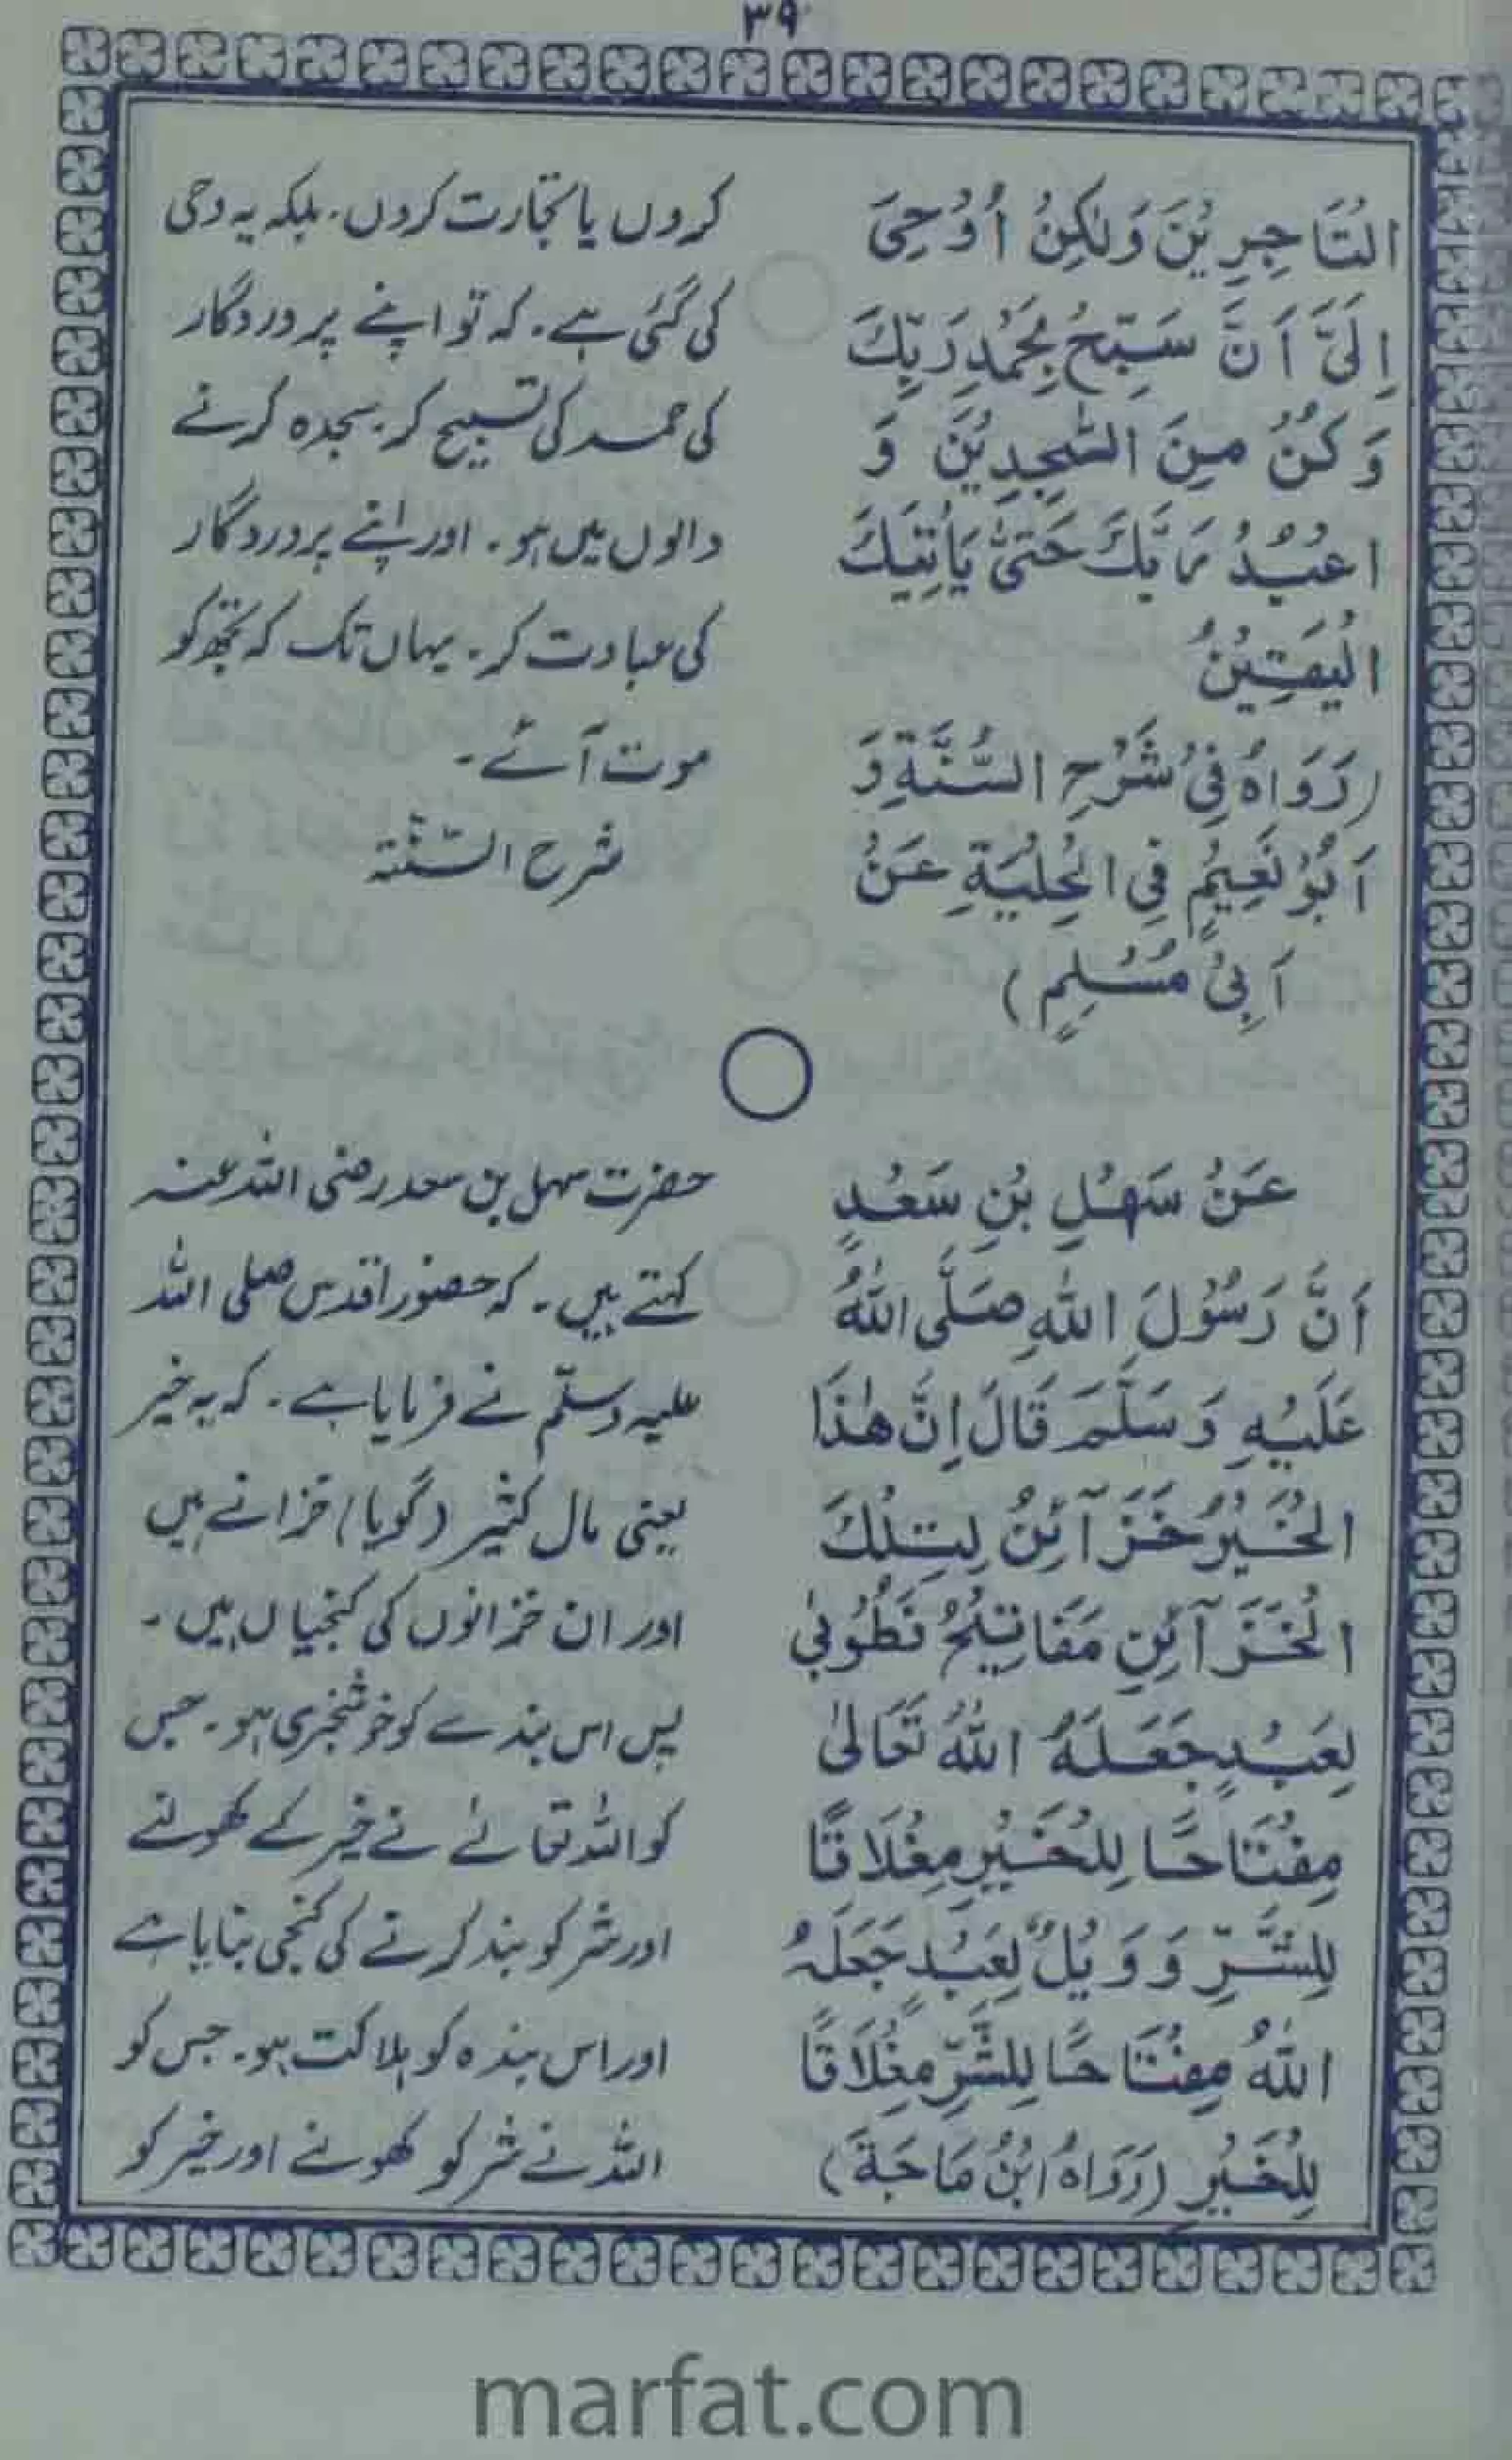 ۳۹
التَّاجِرِيْنَ وَلٰكِنْ اُوْحِيَ
اِلَيَّ اَنْ سَبِّحْ بِحَمْدِ رَبِّكَ
وَكُنْ مِنَ السّٰجِدِيْنَ وَ
اعْبُدْ رَبَّكَ حَتّٰى يَأْتِيَكَ
الْيَقِيْنُ
(رَوَاهُ فِيْ شَرْحِ السُّنَّةِ وَ
اَبُوْ نَعِيْمٍ فِي الْحِلْيَةِ عَنْ
اَبِيْ مُسْلِمٍ)
کروں یا تجارت کروں۔ بلکہ یہ وحی
کی گئی ہے۔ کہ تو اپنے پروردگار
کی حمد کی تسبیح کر۔ سجدہ کرنے
والوں میں ہو۔ اور اپنے پروردگار
کی عبادت کر۔ یہاں تک کہ تجھ کو
موت آئے۔
شرح السّنّتہ
عَنْ سَهْلِ بْنِ سَعْدٍ
اَنَّ رَسُوْلَ اللّٰهِ صَلَّى اللّٰهُ
عَلَيْهِ وَسَلَّمَ قَالَ اِنَّ هٰذَا
الْخَيْرُ خَزَآئِنُ لِتِلْكَ
الْخَزَآئِنِ مَفَاتِيْحُ فَطُوْبٰى
لِعَبْدٍ جَعَلَهُ اللّٰهُ تَعَالٰى
مِفْتَاحًا لِلْخَيْرِ مِغْلَاقًا
لِلشَّرِّ وَوَيْلٌ لِعَبْدٍ جَعَلَهُ
اللّٰهُ مِفْتَاحًا لِلشَّرِّ مِغْلَاقًا
لِلْخَيْرِ (رَوَاهُ ابْنُ مَاجَةَ)
حضرت سہل بن سعد رضی اللہ عنہ
کہتے ہیں۔ کہ حضور اقدس صلی اللہ
علیہ وسلّم نے فرمایا ہے۔ کہ یہ خیر
یعنی مال کثیر (گویا) خزانے ہیں
اور ان خزانوں کی کنجیاں ہیں۔
پس اس بندے کو خوشخبری ہو۔ جس
کو اللہ تعالےٰ نے خیر کے کھولنے
اور شر کو بند کرتے کی کنجی بنایا ہے
اور اس بندہ کو ہلاکت ہو۔ جس کو
اللہ نے شر کو کھولنے اور خیر کو
marfat.com